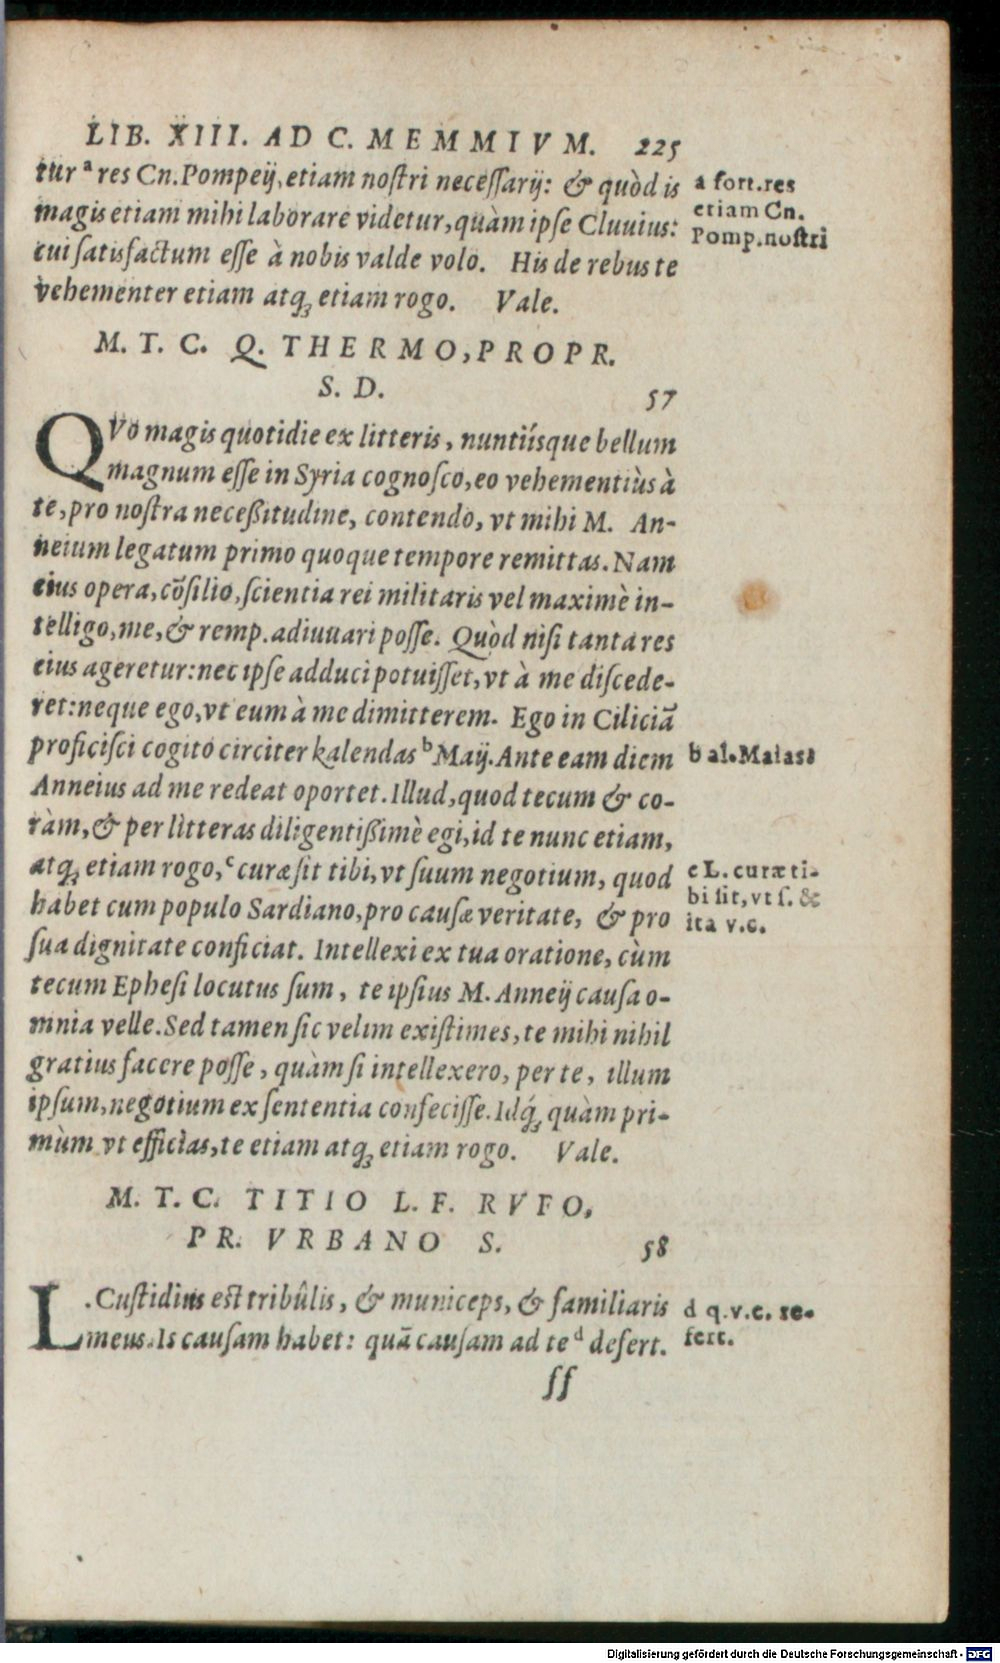 LIB. XIII. AD C. MEMMIVM. 225
tur ᵃ res Cn. Pompeij, etiam noſtri neceſſarij: & quòd is
magis etiam mihi laborare videtur, quàm ipſe Cluuius:
cui ſatisfactum eſſe à nobis valde volo. His de rebus te
vehementer etiam atq; etiam rogo. Vale.
a fort. res
etiam Cn.
Pomp. noſtri
M. T. C. Q. THERMO, PROPR.
S. D. 57
QVo magis quotidie ex litteris, nuntiísque bellum
magnum eſſe in Syria cognoſco, eo vehementiùs à
te, pro noſtra neceßitudine, contendo, vt mihi M. An-
neium legatum primo quoque tempore remittas. Nam
eius opera, cõſilio, ſcientia rei militaris vel maximè in-
telligo, me, & remp. adiuuari poſſe. Quòd niſi tanta res
eius ageretur: nec ipſe adduci potuiſſet, vt à me diſcede-
ret: neque ego, vt eum à me dimitterem. Ego in Ciliciã
proficiſci cogito circiter kalendas ᵇ Maij. Ante eam diem
Anneius ad me redeat oportet. Illud, quod tecum & co-
ràm, & per litteras diligentißimè egi, id te nunc etiam,
atq; etiam rogo, ᶜ curæ ſit tibi, vt ſuum negotium, quod
habet cum populo Sardiano, pro cauſæ veritate, & pro
ſua dignitate conficiat. Intellexi ex tua oratione, cùm
tecum Epheſi locutus ſum, te ipſius M. Anneij cauſa o-
mnia velle. Sed tamen ſic velim exiſtimes, te mihi nihil
gratius facere poſſe, quàm ſi intellexero, per te, illum
ipſum, negotium ex ſententia confeciſſe. Idq́; quàm pri-
mùm vt efficias, te etiam atq; etiam rogo. Vale.
b al. Maias
c L. curæ ti-
bi ſit, vt ſ. &
ita v.c.
M. T. C. TITIO L. F. RVFO,
PR. VRBANO S. 58
L. Cuſtidius eſt tribûlis, & municeps, & familiaris
meus. Is cauſam habet: quã cauſam ad te ᵈ defert.
d q.v.c. re-
fert.
ſſ
Digitalisierung gefördert durch die Deutsche Forschungsgemeinschaft - DFG